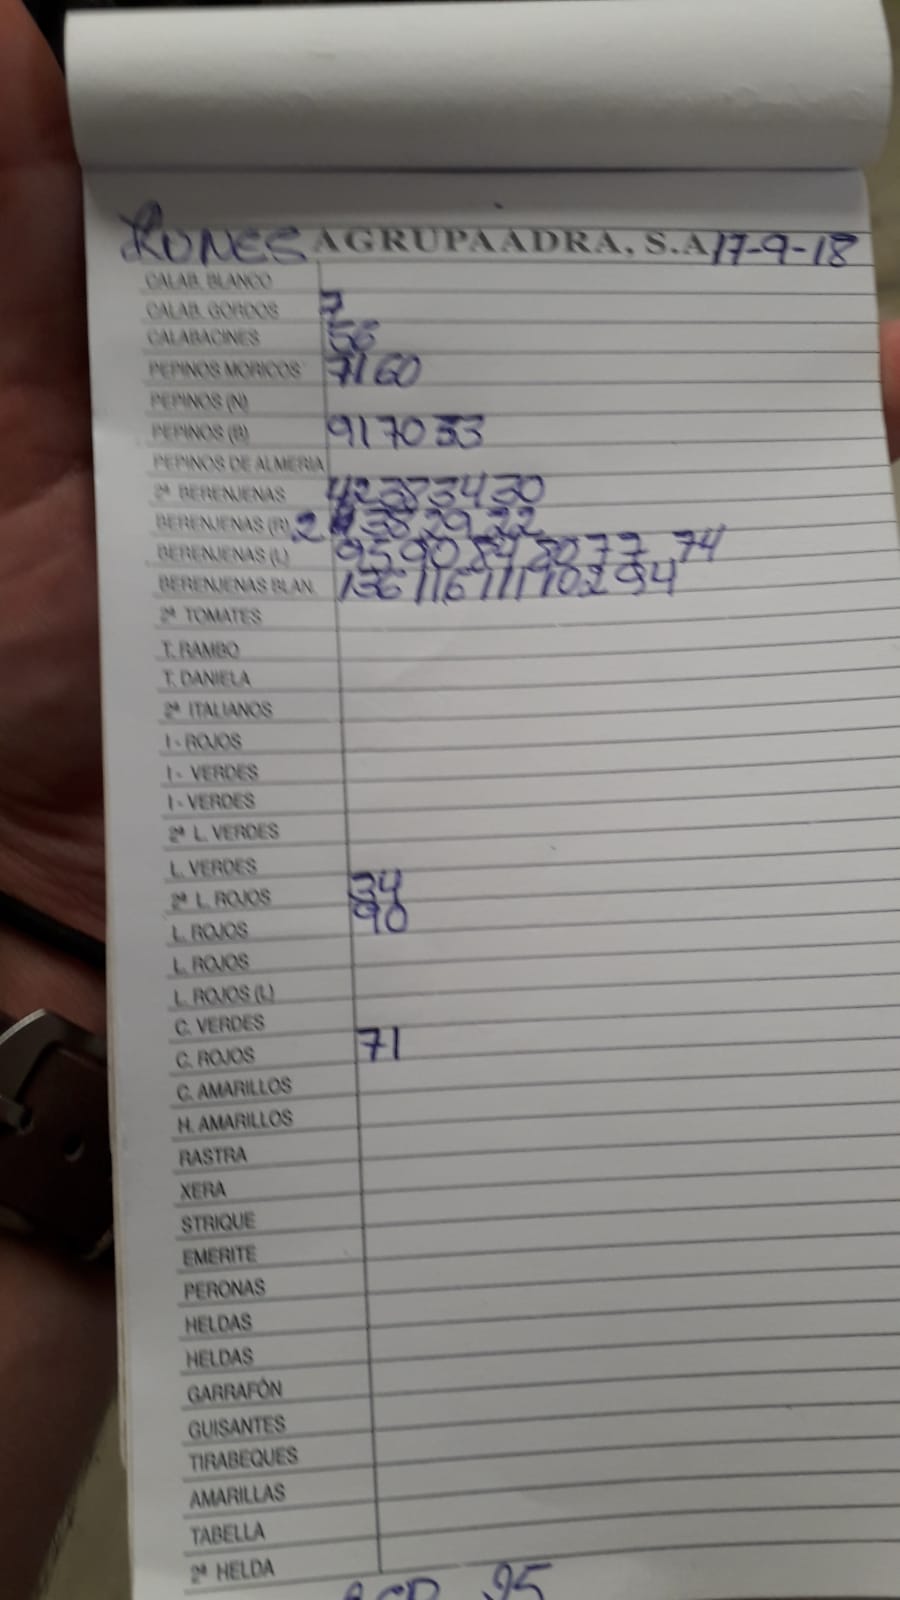 LUNES AGRUPAADRA, S.A 17-9-18
CALAB. BLANCO
CALAB. GORDOS 7
CALABACINES 56
PEPINOS MORICOS 71 60
PEPINOS (N)
PEPINOS (B) 91 70 53
PEPINOS DE ALMERIA
2ª BERENJENAS 42 38 34 30
BERENJENAS (R) 38 29 22
BERENJENAS (L) 95 90 84 80 77 74
BERENJENAS BLAN. 136 116 111 102 94
2ª TOMATES
T. RAMBO
T. DANIELA
2ª ITALIANOS
I - ROJOS
I - VERDES
I - VERDES
2ª L. VERDES
L. VERDES
2ª L. ROJOS 34
L. ROJOS 90
L. ROJOS
L. ROJOS (L)
C. VERDES
C. ROJOS 71
C. AMARILLOS
H. AMARILLOS
RASTRA
XERA
STRIQUE
EMERITE
PERONAS
HELDAS
HELDAS
GARRAFÓN
GUISANTES
TIRABEQUES
AMARILLAS
TABELLA
2ª HELDA
95